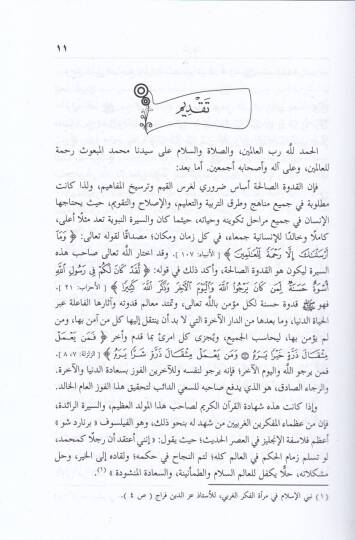 ١١
تقديم
الحمد للَّه رب العالمين، والصلاة والسلام على سيدنا محمد المبعوث رحمة
للعالمين، وعلى آله وأصحابه أجمعين. أما بعد:
فإن القدوة الصالحة أساس ضروري لغرس القيم وترسيخ المفاهيم، ولذا كانت
مطلوبة في جميع مناهج وطرق التربية والتعليم، والإصلاح والتقويم، حيث يحتاجها
الإنسان في جميع مراحل تكوينه وحياته، حيثما كان والسيرة النبوية تعد مثلًا أعلى،
كاملًا وخالدًا للإنسانية جمعاء، في كل زمان ومكان؛ مصداقًا لقوله تعالى: ﴿ وَمَآ
أَرْسَلْنَٰكَ إِلَّا رَحْمَةً لِّلْعَٰلَمِينَ ﴾ [ الأنبياء: ١٠٧ ]. وقد اختار اللَّه تعالى صاحب هذه
السيرة ليكون هو القدوة الصالحة، وأكد ذلك في قوله: ﴿ لَّقَدْ كَانَ لَكُمْ فِى رَسُولِ ٱللَّهِ
أُسْوَةٌ حَسَنَةٌ لِّمَن كَانَ يَرْجُوا۟ ٱللَّهَ وَٱلْيَوْمَ ٱلْءَاخِرَ وَذَكَرَ ٱللَّهَ كَثِيرًا ﴾ [ الأحزاب: ٢١ ].
فهو ﷺ قدوة حسنة لكل مؤمن باللَّه تعالى، وتمتد معالم قدوته وآثارها الفاعلة عبر
الحياة الدنيا، وما بعدها من الدار الآخرة التي لا بد أن ينتقل إليها كل من آمن بها، ومن
لم يؤمن بها، ليحاسب الجميع، ويُجزى كل امرئ بما قدم وأخر ﴿ فَمَن يَعْمَلْ
مِثْقَالَ ذَرَّةٍ خَيْرًا يَرَهُۥ ۞ وَمَن يَعْمَلْ مِثْقَالَ ذَرَّةٍ شَرًّا يَرَهُۥ ﴾ [ الزلزلة: ٧، ٨ ].
فمن يرجو اللَّه واليوم الآخر؛ فإنه يرجو لنفسه وللآخرين الفوز بسعادة الدنيا والآخرة.
والرجاء الصادق، هو الذي يدفع صاحبه للسعي الدائب لتحقيق هذا الفوز العام الخالد.
وإذا كانت هذه شهادة القرآن الكريم لصاحب هذا المولد العظيم، والسيرة الرائدة،
فإن من عظماء المفكرين الغربيين من شهد له بنحو ذلك، وهو الفيلسوف « برنارد شو »
أعظم فلاسفة الإنجليز في العصر الحديث؛ حيث يقول: « إنني أعتقد أن رجلًا كمحمد،
لو تسلم زمام الحكم في العالم كله؛ لتم النجاح في حكمه؛ ولقاده إلى الخير، وحل
مشكلاته، حلًّا يكفل للعالم السلام والطمأنينة، والسعادة المنشودة » (١).
(١) نبي الإسلام في مرآة الفكر الغربي، للأستاذ عز الدين فراج ( ص ٤ ).